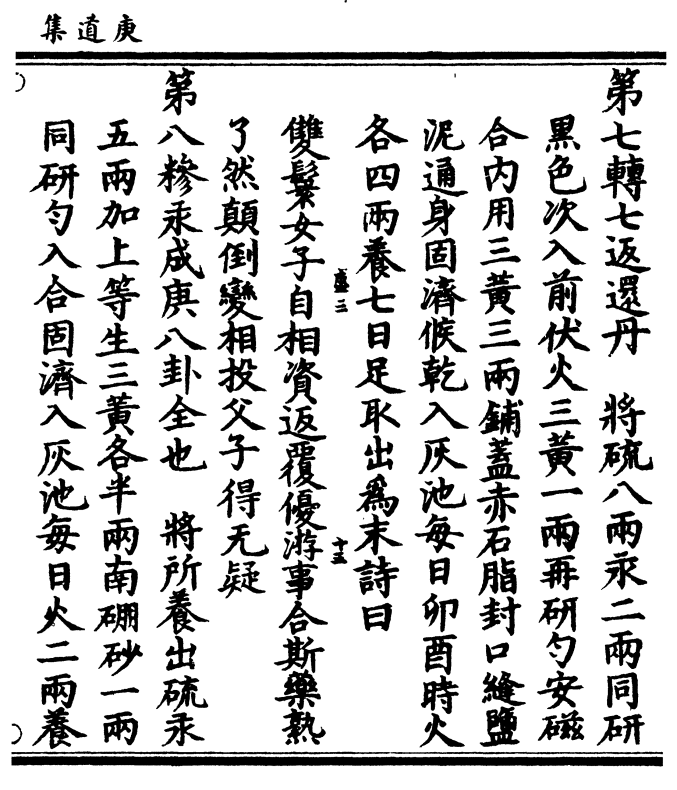 庚道集
第七轉七返還丹　將硫八兩汞二兩同研
黑色次入前伏火三黃一兩再研勻安磁
合内用三黃三兩鋪蓋赤石脂封口縫鹽
泥通身固濟候乾入灰池每日卯酉時火
各四兩養七日足取出爲末詩曰
盛三
十五
雙鬟女子自相資返覆優游事合斯藥熟
了然顛倒變相投父子得无疑
第八糝汞成庚八卦全也　將所養出硫汞
五兩加上等生三黃各半兩南硼砂一兩
同研勻入合固濟入灰池每日火二兩養